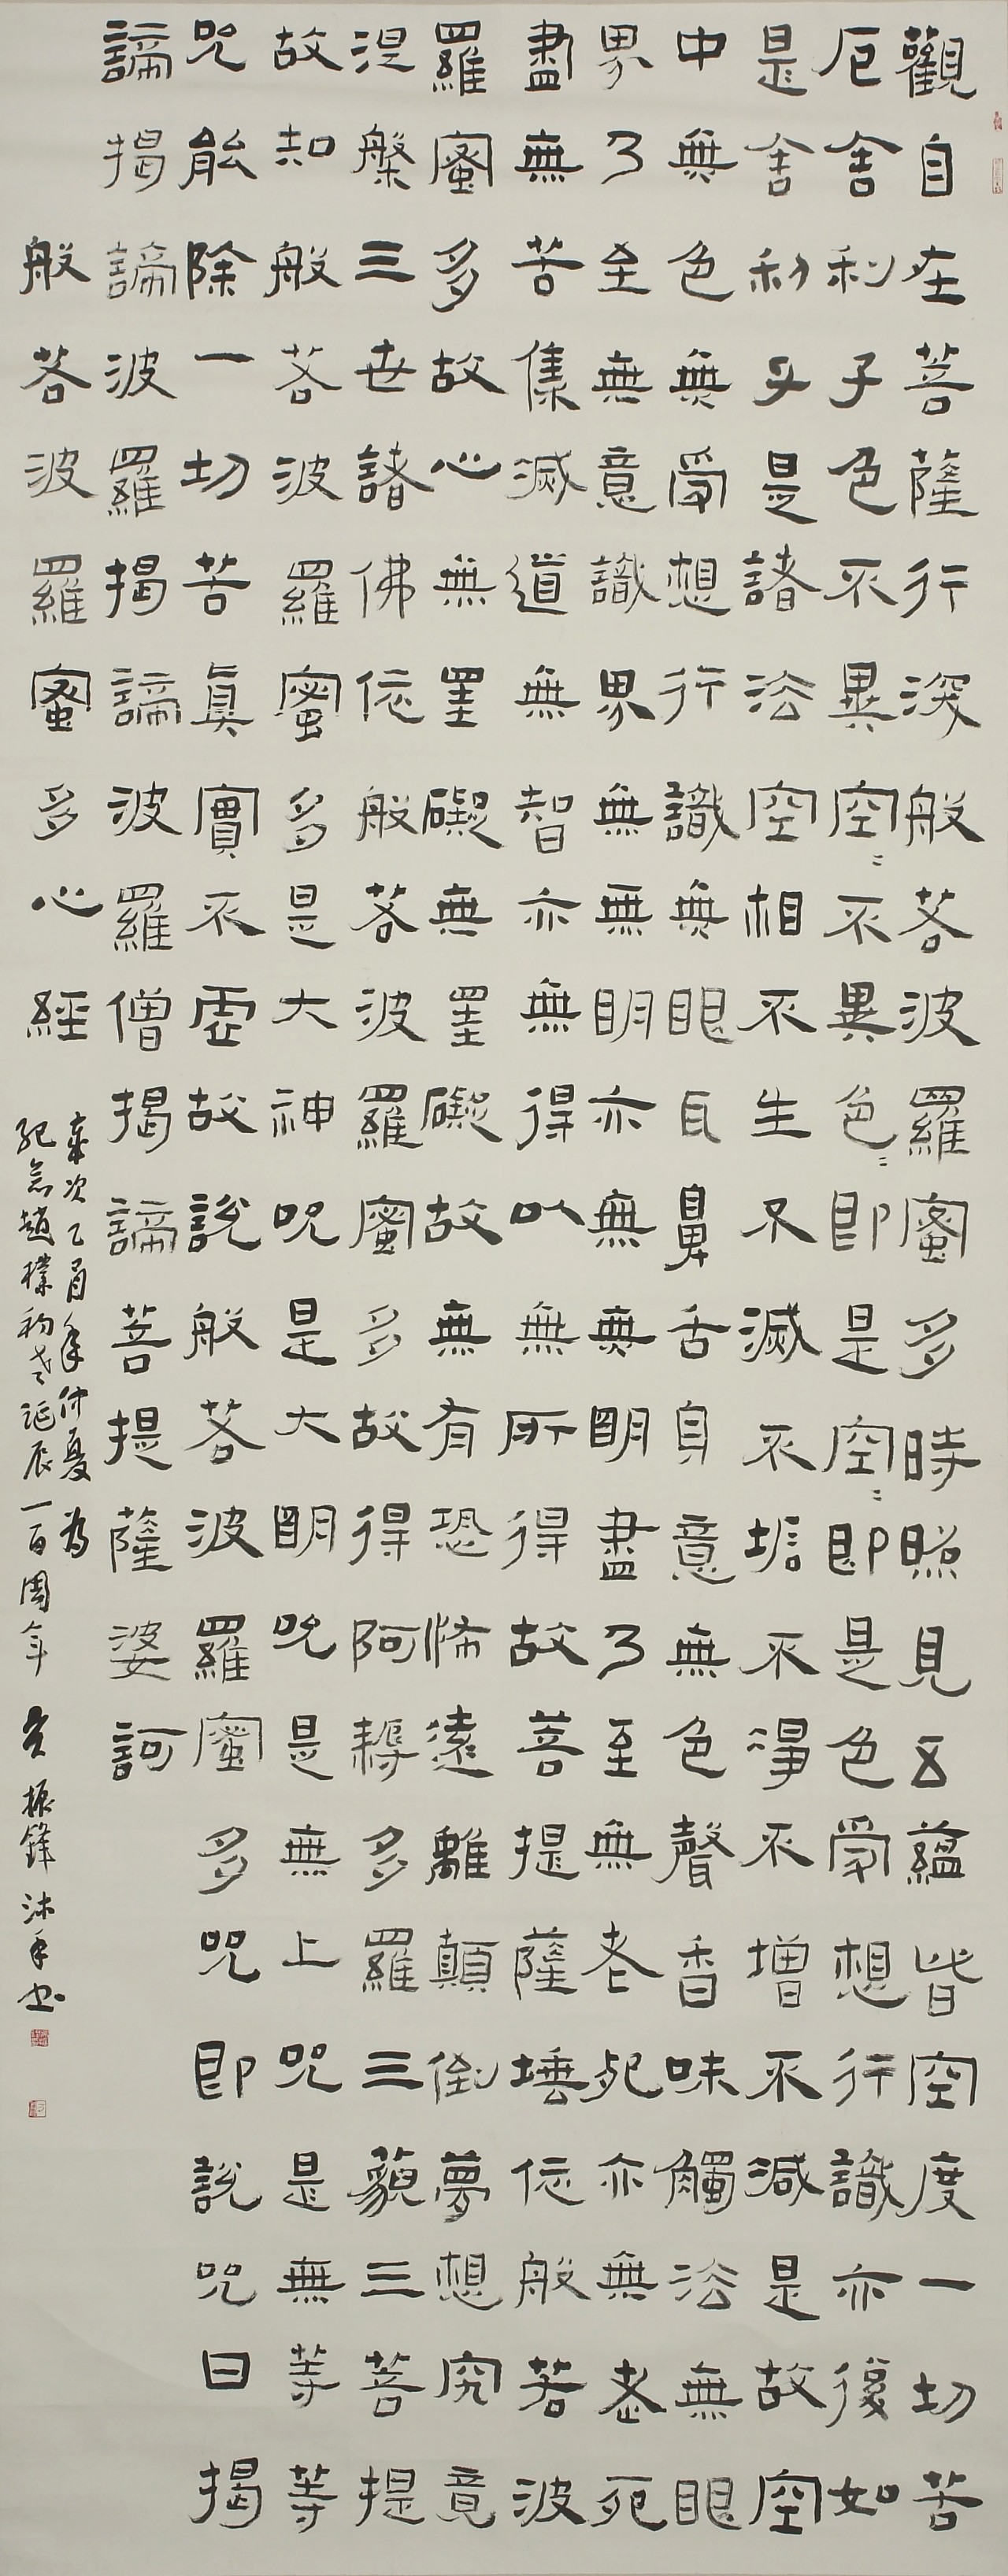 觀自在菩薩行深般若波羅蜜多時照見五蘊皆空度一切苦
厄舍利子色不異空〻不異色〻即是空〻即是色受想行識亦復如
是舍利子是諸法空相不生不滅不垢不淨不增不減是故空
中無色無受想行識無眼耳鼻舌身意無色聲香味觸法無眼
界乃至無意識界無無明亦無無明盡乃至無老死亦無老死
盡無苦集滅道無智亦無得以無所得故菩提薩埵依般若波
羅蜜多故心無罣礙無罣礙故無有恐怖遠離顛倒夢想究竟
涅槃三世諸佛依般若波羅蜜多故得阿耨多羅三藐三菩提
故知般若波羅蜜多是大神咒是大明咒是無上咒是無等等
咒能除一切苦真實不虛故說般若波羅蜜多咒即說咒曰揭
諦揭諦波羅揭諦波羅僧揭諦菩提薩婆訶
般若波羅蜜多心經
歲次乙酉年仲夏為
紀念趙樸初老誕辰一百周年 吳振鋒沐手書